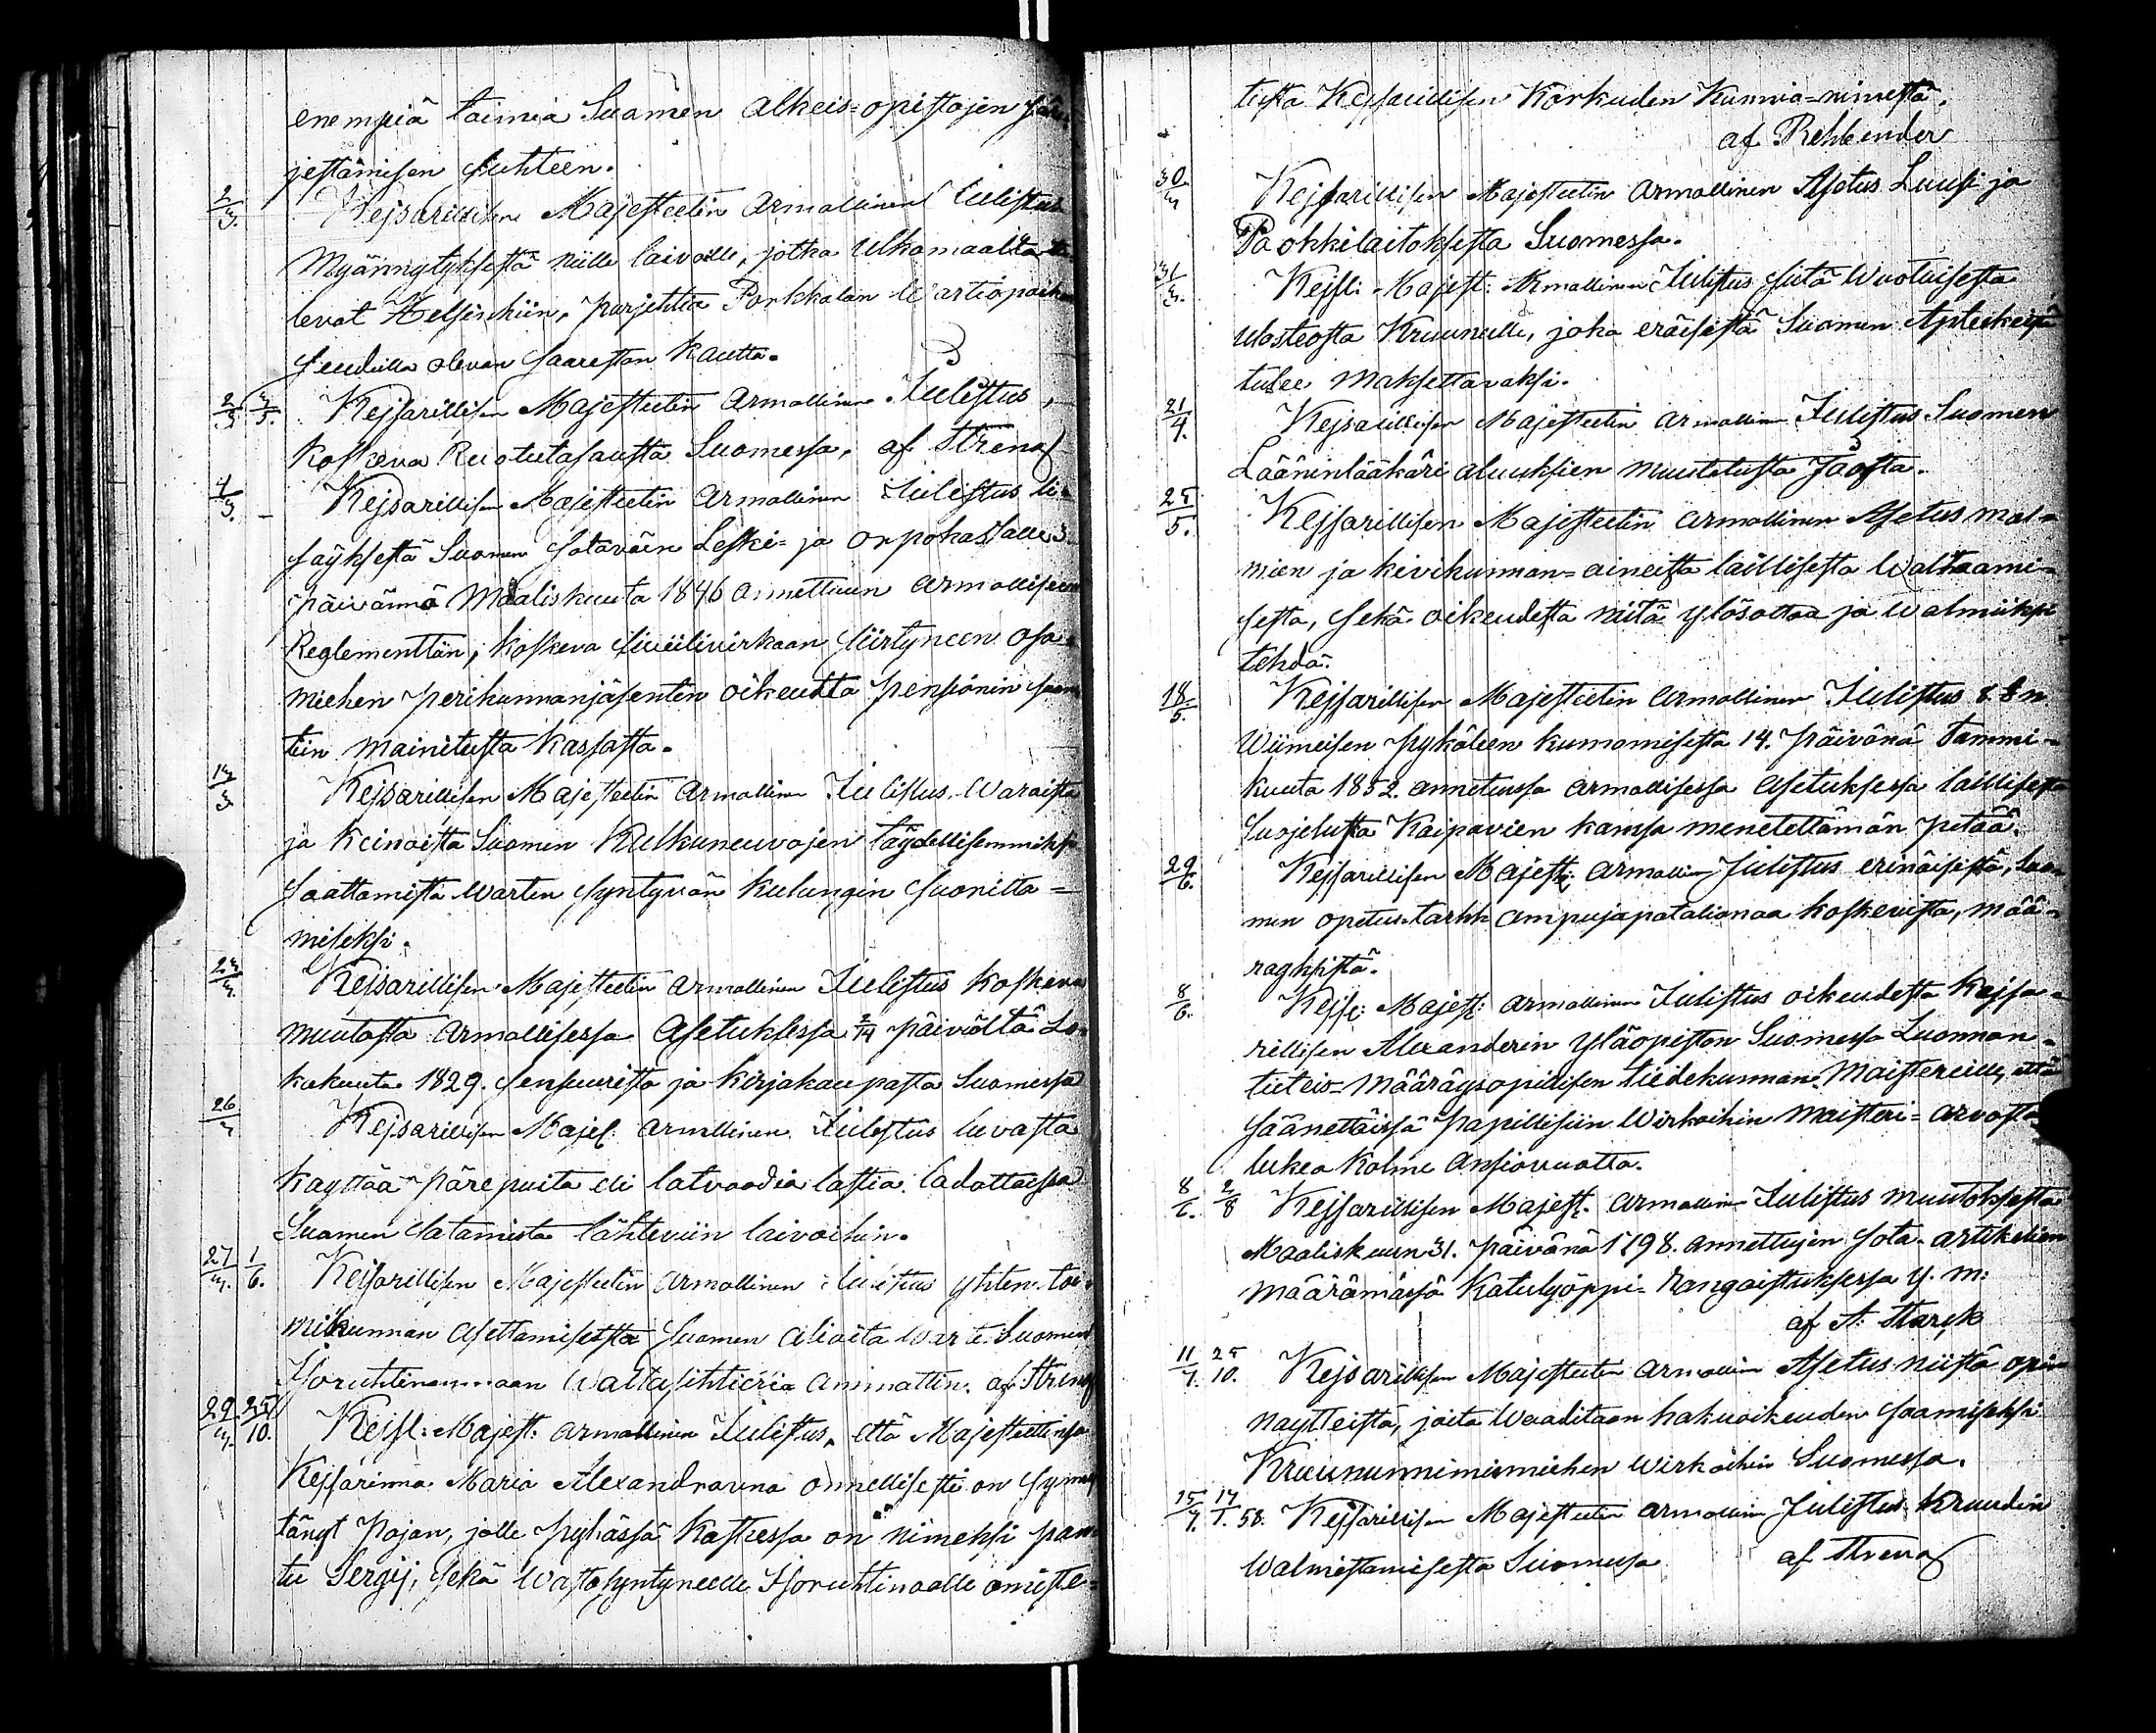 enempiä toimia Suomen Alkeis=opistojen jär=
jestämisen suhteen.
2/3. Kejsarillisen Majesteetin Armollinen Julistus
Myönnytyksestä niille laivoille, jotka Ulkomaalta tu
levat Helsinkiin, purjehtia Porkkalan Wartiopaikan
seudulla olevan Saareston kautta.
2/3 3/5. Kejsarillisen Majesteetin Armollinen Julistus,
koskeva Ruotutasausta Suomessa, af Streng
4/3. Kejsarillisen Majesteetin Armollinen Julistus li=
säyksestä Suomen Sotaväen Leski= ja orpokassalle 3.
päivännä Maaliskuuta 1846 annettuun armolliseen
Reglementtiin, koskeva Siviilivirkaan siirtyneen osa=
miehen perikunnanjäsenten oikeutta pensionin saan
tiin mainitusta kassasta.
13/3 Kejsarillisen Majesteetin Armollinen Julistus Waroista
ja Keinoista Suomen Kulkuneuvojen täydellisemmiksi
saattamista warten syntyvän kulungin suoritta=
miseksi.
23/3. Kejsarillisen Majesteetin Armollinen Julistus koskeva
muutosta Armollisessa Asetuksessa 2/14 päivältä Lo=
kakuuta 1829. sensuurista ja kirjakaupasta Suomessa
26/3 Kejsarillisen Majes. Armollinen Julistus luvasta
käyttää pärepuita eli latvoodia lastia ladottaessa
Suomen satamista lähteviin laivoihin.
27/3. 1/6. Keisarillisen Majesteetin Armollinen Julistus yhten toi=
mikunnan Asettamisesta Suomen Asioita wart. Suomen
Isoruhtinanmaan Waltasihtieria Ammattin. af Streng
29/3. 25/10. Keisl: Majest: Armollinen Julistus, että Majesteettinsa
Kejsarinna Maria Alexandrovna onnellisesti on synnyt
tänyt Pojan, jolle pyhässä Kasteessa on nimeksi pan
tu Sergij, sekä Wastasyntyneelle Isoruhtinaalle omiste=
tusta Kejsarillisen Korkuden Kunnia=nimestä.
af Rehbender
30/3 Kejsarillisen Majesteetin Armollinen Asetus Luusi ja
Paokkilaitoksesta Suomessa.
31/3. Kejsl: Majest: Armollinen Julistus siitä Wuotuisesta
ulosteosta Kruunulle, joka eräisistä Suomen Apteekeista
tulee maksettavaksi.
21/4. Kejsarillisen Majesteetin Armollinen Julistus Suomen
Lääninlääkäri aluuksien muutetusta jaosta.
25/5. Kejsarillisen Majesteetin Armollinen Asetus mal=
mien ja kivikunnan=aineitta laillisesta Waltaami=
sesta, sekä oikeudesta niitä ylösottaa ja walmiiksi
tehdä.
18/5. Kejsarillisen Majesteetin Armollinen Julistus 8.§:n
Wiimeisen pykäleen kumomisesta 14. päivänä Tammi=
kuuta 1852. annetussa armollisessa Asetuksessa laillisesta
suojelusta Kaipavien kanssa menetettämän pitää.
29/6. Kejsarillisen Majest: Armollin Julistus erinäisistä, Suo=
men opetus=tarkk=ampujapatalionaa koskevista, mää=
räyksistä.
8/6. Kejsl: Majest: armollinen Julistus oikeudesta Kejsa=
rillisen Alexanderin Yläopiston Suomessa Luonnon=
tieteis=Määräysopidisen tiedekunnan Maistereille, että
säänettäissä Papillisiin Wirkoihin Maisteri=arvosta
lukea kolme ansiovuotta.
8/6. 2/8 Kejsarillisen Majest. armollinen Julistus muutoksesta
Maaliskuun 31. päivänä 1798. annettujen sota=artikelien
määräämässä Katulyöppi=Rangaistuksessa y. m:
af A: Starck
11/7. 25/10. Kejsarillisen Majesteetin Armollinen Asetus niistä opin
näytteistä, joita Waaditaan hakuoikeuden saamiseksi
Kruununnimismiehen Wirkoihin Suomessa.
15/7. 14/1. 58. Kejsarillisen Majesteetin armollinen Julistus Kruudin
Walmistamisesta Suomessa af Streng